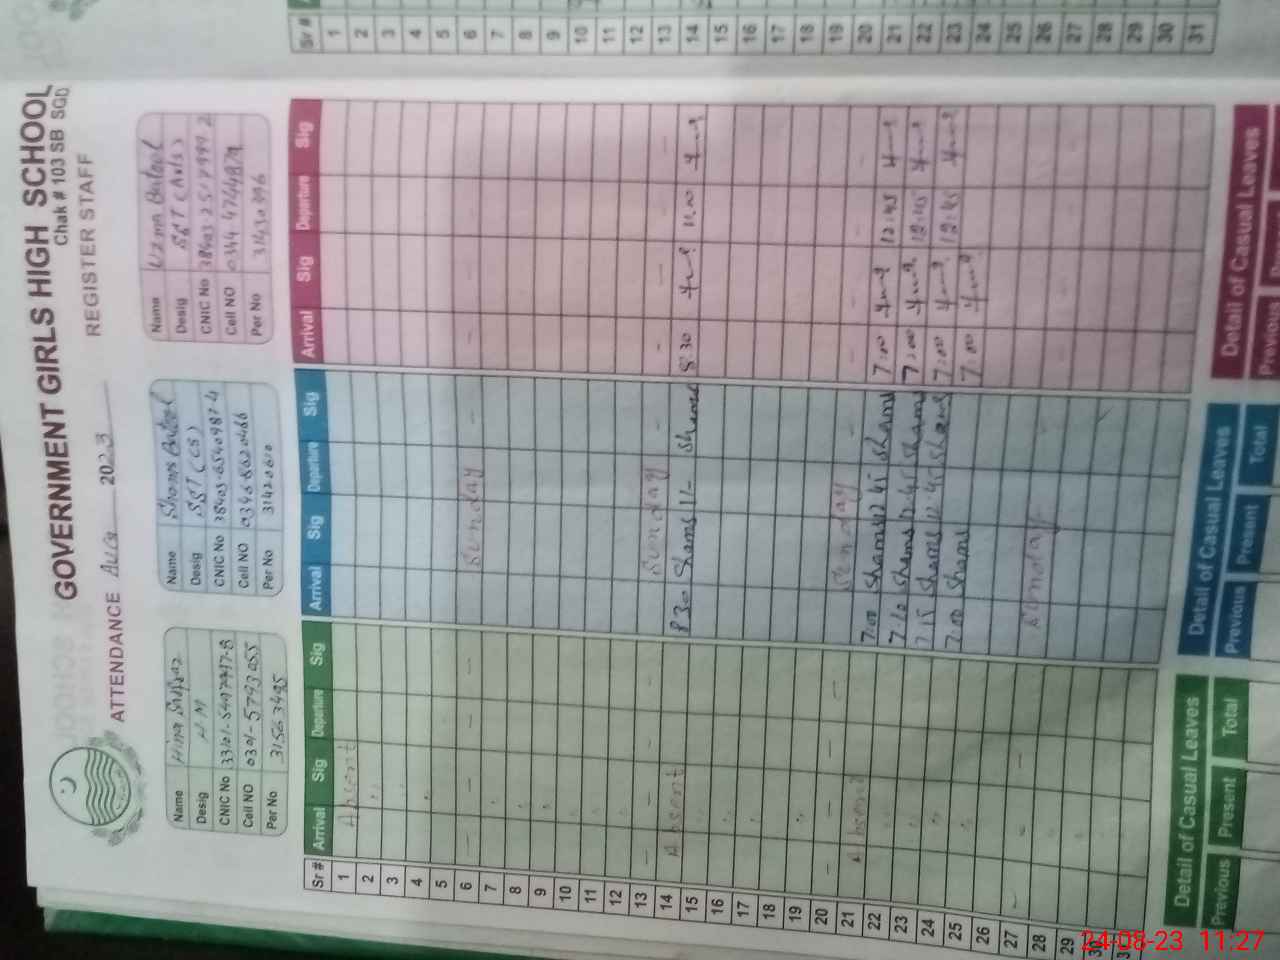 GOVERNMENT GIRLS HIGH SCHOOL
Chak # 103 SB SGD
ATTENDANCE Aug 2023 REGISTER STAFF
Name Hina
Desig
CNIC No
Cell NO 0301-5793055
Per No 31563495
Name Shams Batool
Desig SST (CS)
CNIC No 38403-6540987-4
Cell NO 0346 8620466
Per No 31420610
Name Uzma Batool
Desig SST (Arts)
CNIC No
Cell NO 0344 4744879
Per No
Sr # Arrival Sig Departure Sig Arrival Sig Departure Sig Arrival Sig Departure Sig
1 Absent
2
3
4
5
6 Sunday
7
8
9
10
11
12
13 Sunday
14 Absent 830 Shams 11/- Shams 8:30 11:00
15
16
17
18
19
20 Sunday
21 Absent 7:00 Shams 12:45 Shams 7:00 12:45
22 7:10 Shams 12:45 Shams 7:00 12:45
23 7:15 Shams 12:45 Shams 7:00 12:45
24 7:00 Shams 7:00
25
26
27 Sunday
28
29
30
31
Detail of Casual Leaves Detail of Casual Leaves Detail of Casual Leaves
Previous Present Total Previous Present Total Previous
Sr #
1
2
3
4
5
6
7
8
9
10
11
12
13
14
15
16
17
18
19
20
21
22
23
24
25
26
27
28
29
30
31
24-08-23 11:27